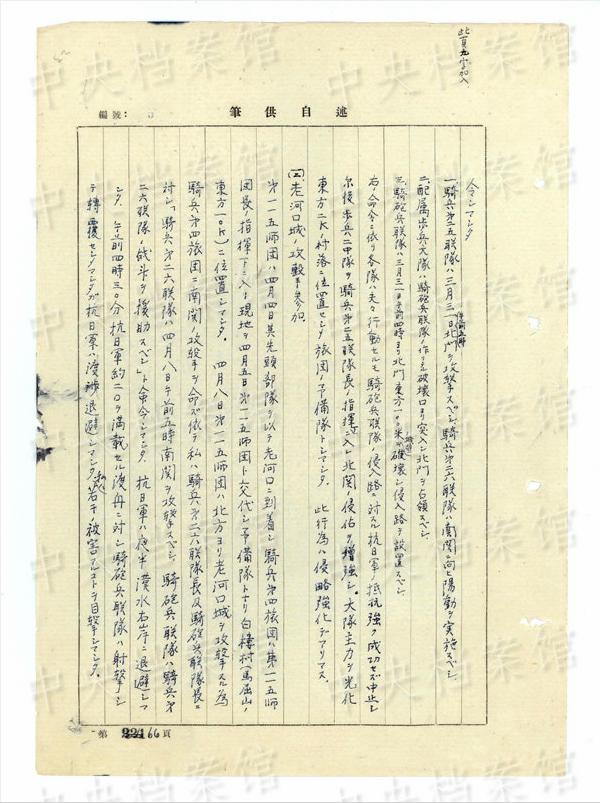 此頁九字加入
編號:
述自供筆
令シマシタ
一、騎兵第二五联隊ハ三月三一日北門ヲ攻撃スベシ 騎兵第二六联隊ハ南関ニ向ヒ陽動ヲ実施スベシ
二、配属歩兵大隊ハ騎砲兵联隊ノ作リタル破壊口ヨリ突入シ北門ヲ占領スベシ
三、騎砲兵联隊ハ三月三一日午前四時ヨリ北門東方一〇〇米ノ城壁ヲ破壊シ侵入路ヲ設置スベシ
右ノ命令ニ依リ各隊ハ夫々行動セルモ騎砲兵联隊ノ侵入路ニ対スル抗日軍ノ抵抗強ク成功セズ中止シ
尓後歩兵二中隊ヲ騎兵第二五联隊長ノ指揮ニ入レ北関ノ侵佔ヲ増強シ 大隊主力ヲ光化
東方二Kノ村落ニ位置セシメ旅団ノ予備隊トシマシタ 此行為ハ侵略強化デアリマス。
(三)、老河口城ノ攻撃ニ参加。
第一一五師団ハ四月四日其先頭部隊ヲ以テ老河口ニ到着シ騎兵第四旅団ハ第一一五師
団長ノ指揮下ニ入リ現地ヲ四月五日第一一五師団ト交代シ予備隊トナリ白楼村(馬屈山ノ
東方一〇K)ニ位置シマシタ。 四月八日第一一五師団ハ北方ヨリ老河口城ヲ攻撃スル為
騎兵第四旅団ニ南関ノ攻撃ヲ命ズ依テ私ハ騎兵第二六联隊長及騎砲兵联隊長ニ
対シ「騎兵第二六联隊ハ四月八日午前五時南関ヲ攻撃スベシ 騎砲兵联隊ハ騎兵第
二六联隊ノ战斗ヲ援助スベシ」ト命令シマシタ。 抗日軍ハ夜半漢水右岸ニ退避シマ
シタ。 午前四時三〇分抗日軍約二〇ヲ満載セル渡舟ニ対シ騎砲兵联隊ハ射撃シ
テ轉覆セシメマシタガ抗日軍ハ渡渉退避シマシタ 若干被害アルコトヲ目撃シマシタ。
第 66 頁
中央档案馆